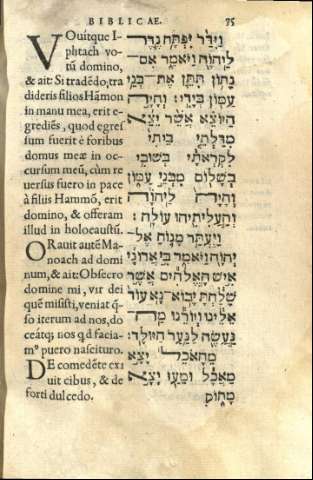 BIBLICAE. 75
VOuitque I-
phtach vo-
tū domino,
& ait: Si tradēdo, tra
dideris filios Hāmon
in manu mea, erit e-
grediēs, quod egres
sum fuerit è foribus
domus meæ in oc-
cursum meū, cùm re
uersus fuero in pace
à filiis Hammō, erit
domino, & offeram
illud in holocaustū.
ORauit autē Ma-
noach ad domi
num, & ait: Obsecro
domine mi, vir dei
quē misisti, veniat q̄-
so iterum ad nos, do-
ceátq; nos qd facia-
m⁹ puero nascituro.
DE comedēte exi
uit cibus, & de
forti dulcedo.
וַיִּדַּר יִפְתָּח נֶדֶר
לַיהוָה וַיֹּאמַר אִם־
נָתוֹן תִּתֵּן אֶת־בְּנֵי
עַמּוֹן בְּיָדִי׃ וְהָיָה
הַיּוֹצֵא אֲשֶׁר יֵצֵא
מִדַּלְתֵי בֵיתִי
לִקְרָאתִי בְּשׁוּבִי
בְשָׁלוֹם מִבְּנֵי עַמּוֹן
וְהָיָה לַיהוָה
וְהַעֲלִיתִיהוּ עוֹלָה׃
וַיֶּעְתַּר מָנוֹחַ אֶל־
יְהוָה וַיֹּאמַר בִּי אֲדוֹנָי
אִישׁ הָאֱלֹהִים אֲשֶׁר
שָׁלַחְתָּ יָבוֹא־נָא עוֹד
אֵלֵינוּ וְיוֹרֵנוּ מַה־
נַּעֲשֶׂה לַנַּעַר הַיּוּלָּד׃
מֵהָאֹכֵל יָצָא
מַאֲכָל וּמֵעַז יָצָא
מָתוֹק